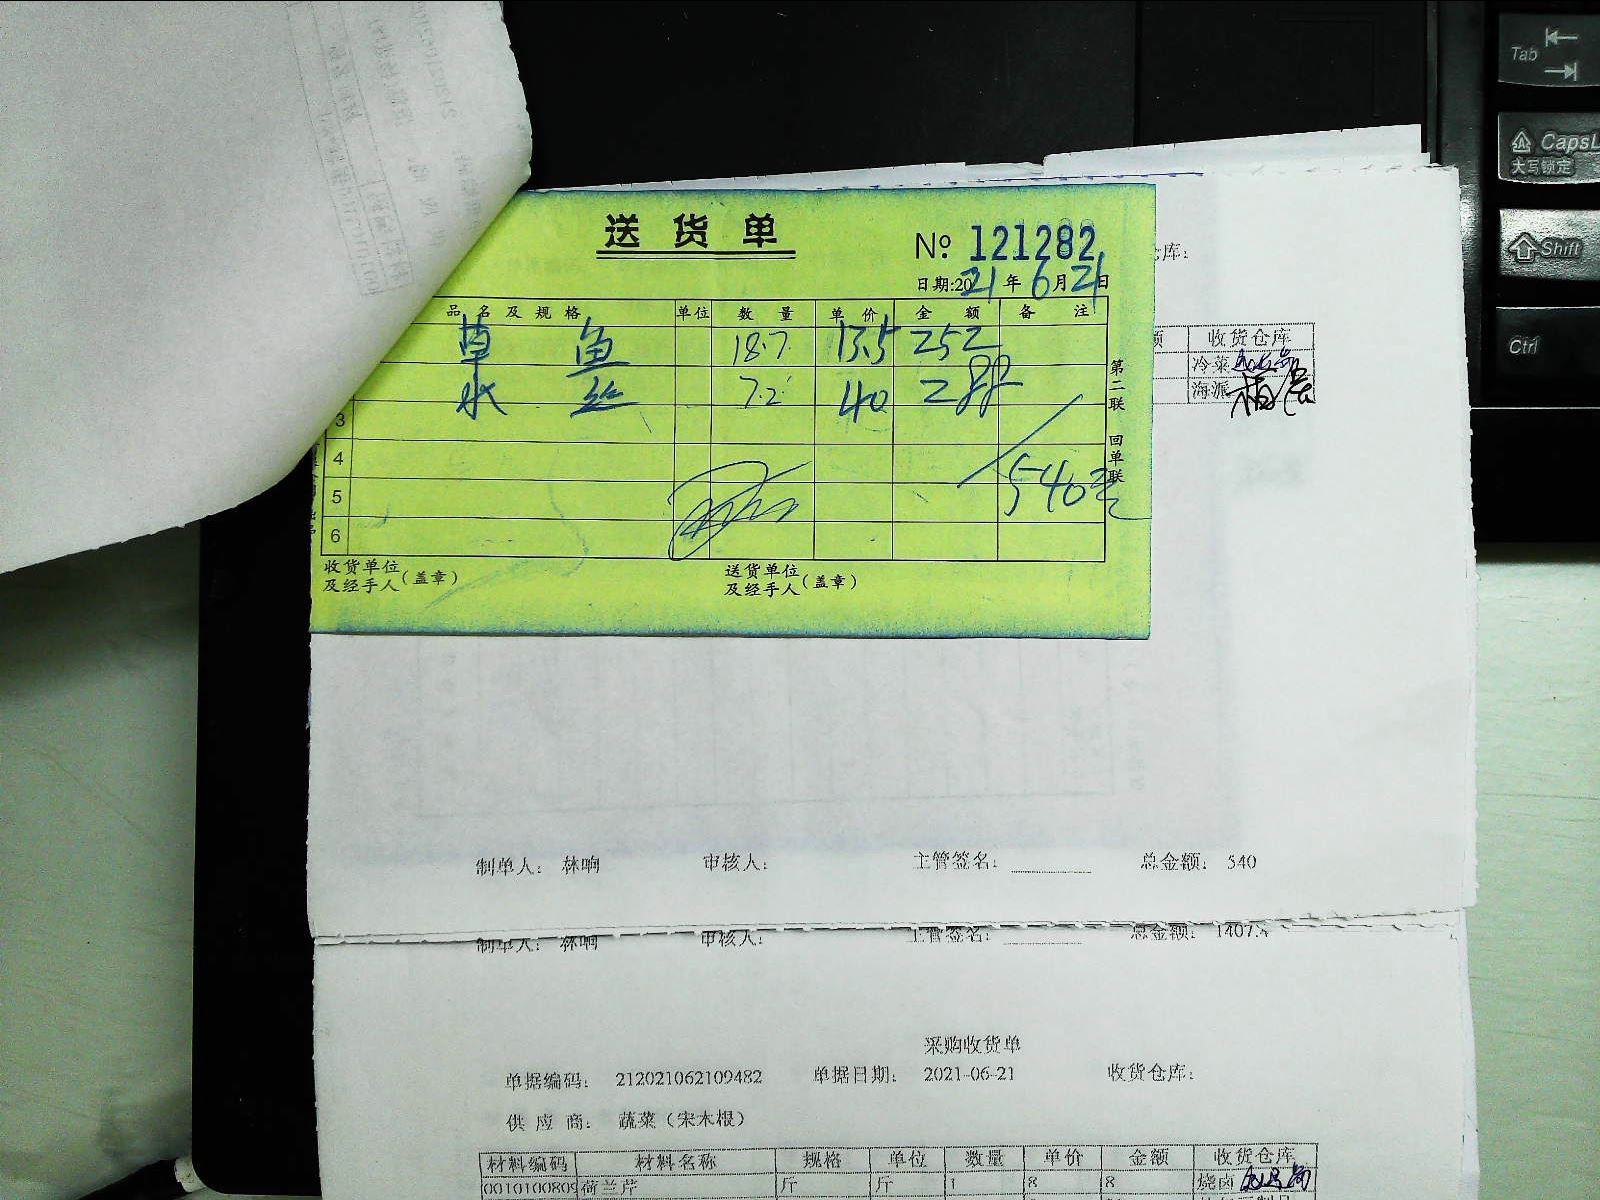 送货单
№ 121282
日期:2021年6月21日
品名及规格 单位 数量 单价 金额 备注
草鱼 18.7 13.5 252
水 7.2 40 288
3
4
5
6
540元
第二联 回单联
收货单位及经手人(盖章)
送货单位及经手人(盖章)
仓库:
额 收货仓库
冷菜
海派
制单人: 林响 审核人: 主管签名: 总金额: 540
制单人: 林响 审核人: 主管签名: 总金额:
采购收货单
单据编码: 212021062109482 单据日期: 2021-06-21 收货仓库:
供应商: 蔬菜(宋木根)
材料编码 材料名称 规格 单位 数量 单价 金额 收货仓库
荷兰芹 斤 斤 1 8 8 烧卤
Tab
CapsL
大写锁定
Shift
Ctrl